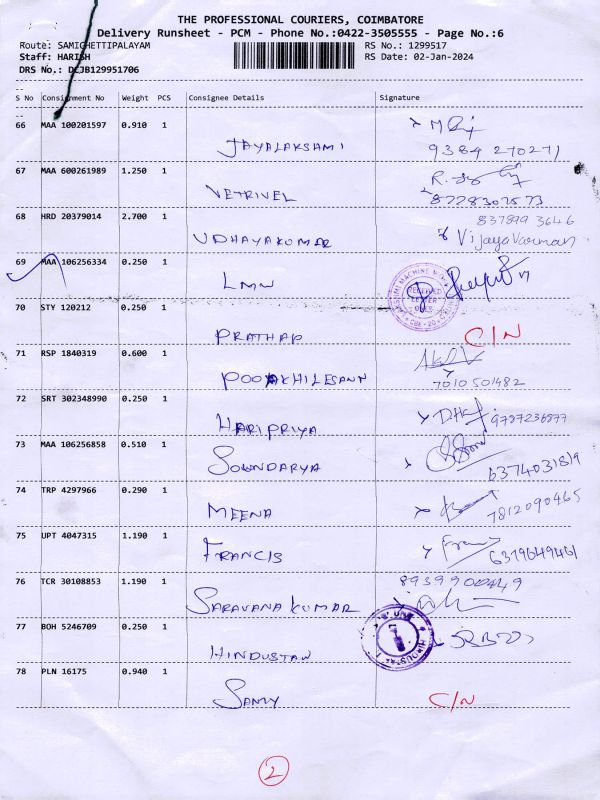 THE PROFESSIONAL COURIERS, COIMBATORE
Delivery Runsheet - PCM - Phone No.:0422-3505555 - Page No.:6
Route: SAMICHETTIPALAYAM RS No.: 1299517
Staff: HARISH RS Date: 02-Jan-2024
DRS No.: DCJB129951706
S No Consignment No Weight PCS Consignee Details Signature
66 MAA 100201597 0.910 1
JAYALAKSHMI 9384 270271
67 MAA 600261989 1.250 1
VETRIVEL 8728302573
68 HRD 20379014 2.700 1 837899 3646
UDHAYAKUMAR Vijayavarman
69 MAA 106256334 0.250 1
LMW
70 STY 120212 0.250 1
PRATHAP C/N
71 RSP 1840319 0.600 1
POOAKHILESANN 7010501482
72 SRT 302348990 0.250 1
HARIPRIYA 9787236877
73 MAA 106256858 0.510 1
SOWNDARYA 6374031819
74 TRP 4297966 0.290 1
MEENA 7812090465
75 UPT 4047315 1.190 1
FRANCIS 6379649461
76 TCR 30108853 1.190 1
SARAVANAKUMAR
77 BOH 5246709 0.250 1
HINDUSTAN
78 PLN 16175 0.940 1
SAMY C/N
2